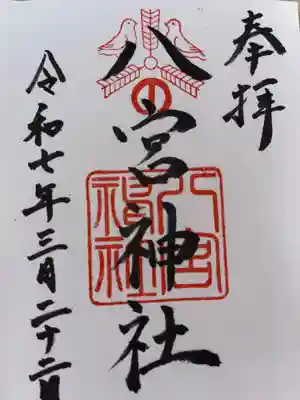 奉拝
八宮神社
八宮神社
令和七年三月二十二日